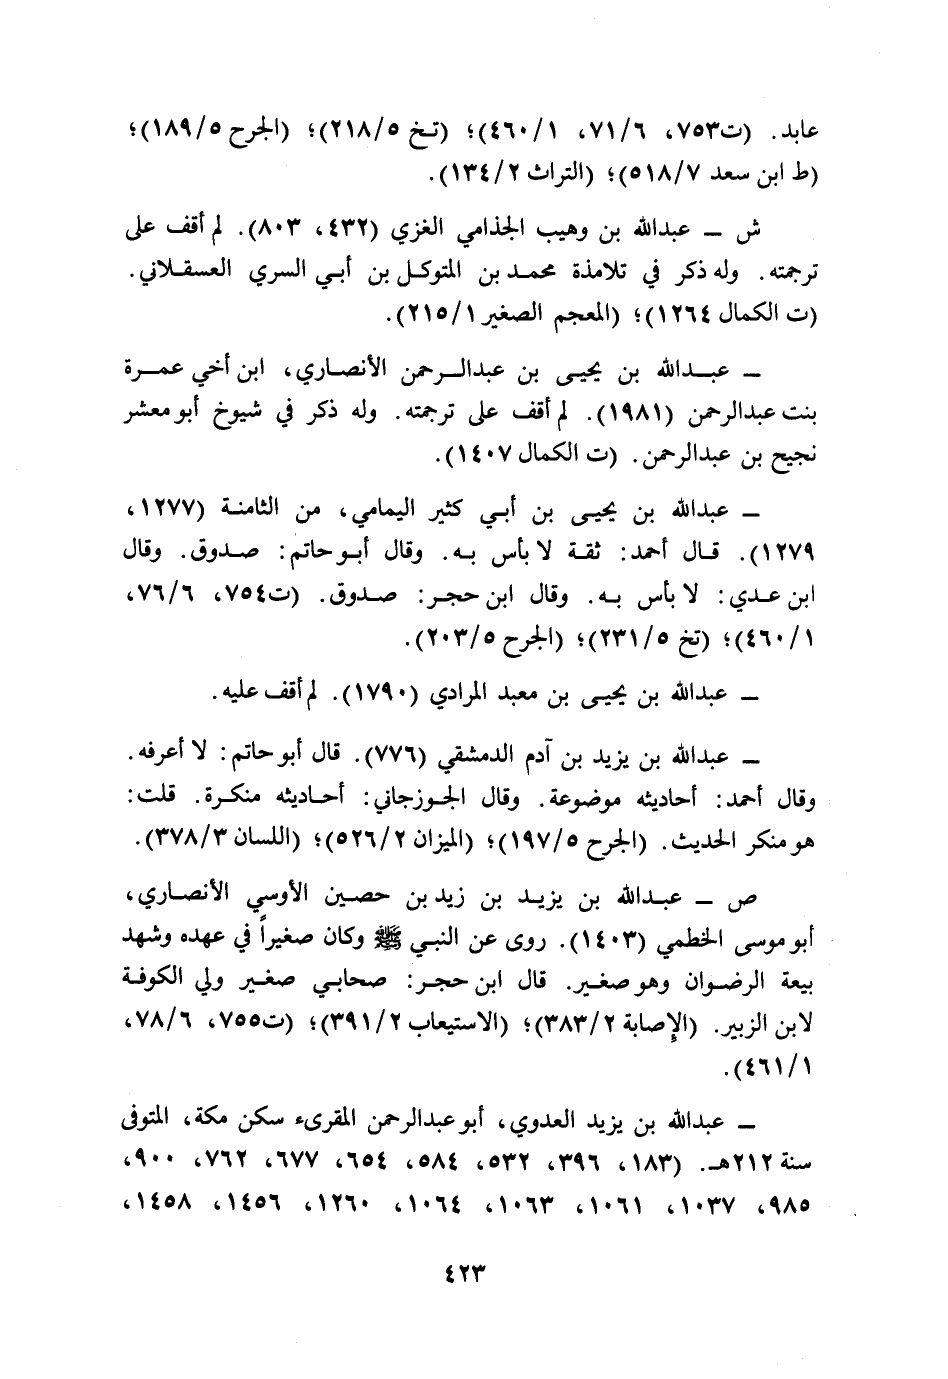 عابد. (ت٧٥٣، ٧١/٦، ٤٦٠/١)؛ (تخ ٢١٨/٥)؛ (الجرح ١٨٩/٥)؛
(ط ابن سعد ٥١٨/٧)؛ (التراث ١٣٤/٢).
ش ــ عبدالله بن وهيب الجذامي الغزي (٤٣٢، ٨٠٣). لم أقف على
ترجمته. وله ذكر في تلامذة محمد بن المتوكل بن أبي السري العسقلاني.
(ت الكمال ١٢٦٤)؛ (المعجم الصغير ٢١٥/١).
ــ عبدالله بن يحيى بن عبدالرحمن الأنصاري، ابن أخي عمرة
بنت عبدالرحمن (١٩٨١). لم أقف على ترجمته. وله ذكر في شيوخ أبو معشر
نجيح بن عبدالرحمن. (ت الكمال ١٤٠٧).
ــ عبدالله بن يحيى بن أبي كثير اليمامي، من الثامنة (١٢٧٧،
١٢٧٩). قال أحمد: ثقة لا بأس به. وقال أبو حاتم: صدوق. وقال
ابن عدي: لا بأس به. وقال ابن حجر: صدوق. (ت٧٥٤، ٧٦/٦،
٤٦٠/١)؛ (تخ ٢٣١/٥)؛ (الجرح ٢٠٣/٥).
ــ عبدالله بن يحيى بن معبد المرادي (١٧٩٠). لم أقف عليه.
ــ عبدالله بن يزيد بن آدم الدمشقي (٧٧٦). قال أبو حاتم: لا أعرفه.
وقال أحمد: أحاديثه موضوعة. وقال الجوزجاني: أحاديثه منكرة. قلت:
هو منكر الحديث. (الجرح ١٩٧/٥)؛ (الميزان ٥٢٦/٢)؛ (اللسان ٣٧٨/٣).
ص ــ عبدالله بن يزيد بن زيد بن حصين الأوسي الأنصاري،
أبو موسى الخطمي (١٤٠٣). روى عن النبي ﷺ وكان صغيراً في عهده وشهد
بيعة الرضوان وهو صغير. قال ابن حجر: صحابي صغير ولي الكوفة
لابن الزبير. (الإصابة ٣٨٣/٢)؛ (الاستيعاب ٣٩١/٢)؛ (ت٧٥٥، ٧٨/٦،
٤٦١/١).
ــ عبدالله بن يزيد العدوي، أبو عبدالرحمن المقرىء سكن مكة، المتوفى
سنة ٢١٢هـ. (١٨٣، ٣٩٦، ٥٣٢، ٥٨٤، ٦٥٤، ٦٧٧، ٧٦٢، ٩٠٠،
٩٨٥، ١٠٣٧، ١٠٦١، ١٠٦٣، ١٠٦٤، ١٢٦٠، ١٤٥٦، ١٤٥٨،
٤٢٣